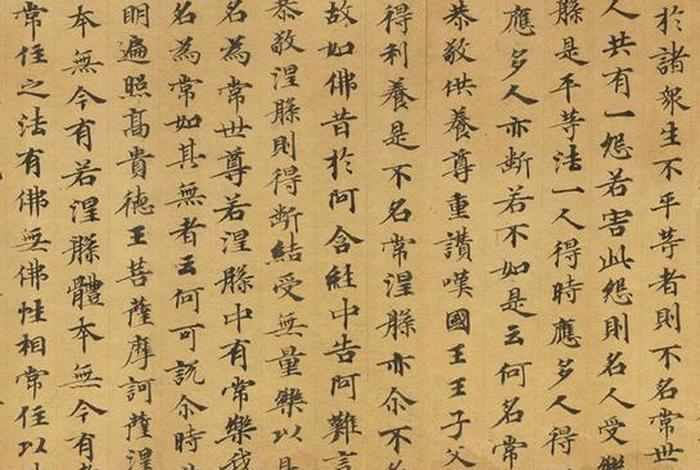 於諸衆生不平等者則不名常世
人共有一怨若害此怨則名人受樂
槃是平等法一人得時應多人得
應多人亦断若不如是云何名常
恭敬供養尊重讃嘆國王王子父
得利養是不名常涅槃亦尒不名
故如佛昔於阿含経中告阿難言
恭敬涅槃則得断結受無量樂以是
名為常世尊若涅槃中有常樂我
名為常如其無者云何可説尒時
明遍照高貴徳王菩薩摩訶薩涅
本無今有若涅槃體本無今有
常住之法有佛無佛性相常住以